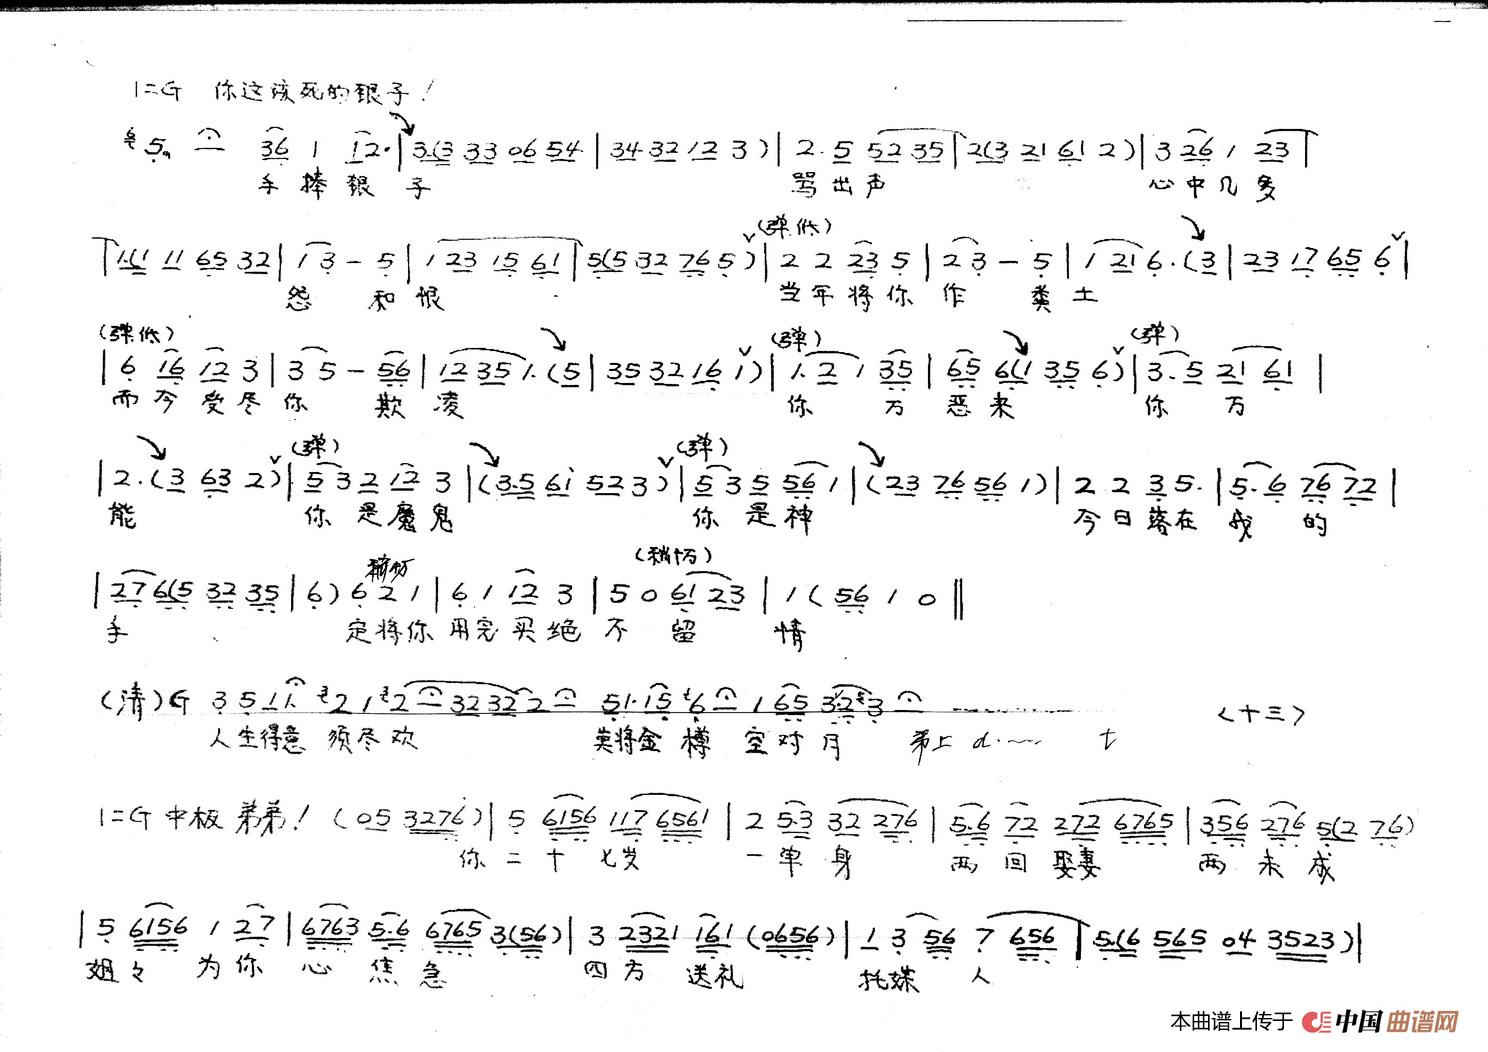 1=G 你这该死的银子！
5. 36 1 12. | 3.(3 33 06 54 | 34 32 12 3 ) | 2. 5 52 35 | 2(3 21 61 2 ) | 3 26 1 23 |
手捧银子 骂出声 心中几多
| 1.(1 11 65 32 | 1 3 - 5 | 1 23 15 61 | 5(5 32 76 5 ) | (弹低) 2 2 23 5 | 2 3 - 5 | 1 21 6. (3 | 23 17 65 6 |
怨 和恨 当年将你 作 粪土
(弹低) (弹) (弹)
| 6 16 12 3 | 3 5 - 56 | 12 35 1. (5 | 35 32 16 1 ) | 1. 2 1 35 | 65 6(1 35 6 ) | 3. 5 21 61 |
而今受尽你 欺凌 你 万恶来 你 万
(弹) (弹)
| 2. (3 63 2 ) | 5 3 2 12 3 | (3.5 61 52 3 ) | 5 3 5 56 1 | (23 76 56 1 ) | 2 2 3 5. | 5. 6 76 72 |
能 你 是魔鬼 你 是神 今日落在 我 的
(稍慢)
| 27 6(5 32 35 | 6 ) 6 2 1 | 6 1 12 3 | 5 0 61 23 | 1 ( 56 1 0 ‖
手 定将你 用完买绝 不 留 情
(清) G 3 5 1 1. 2 1 2 32 32 2 51. 15 6 1 65 3.2 3
人生得意 须尽欢 莫将金樽 空对月 <十三>
1=G 中板 弟弟！ ( 05 3276 ) | 5 6156 117 6561 | 2 5.3 32 276 | 5.6 72 272 6765 | 356 276 5(2 76 )
你二十七岁 一单身 两回娶妻 两未成
| 5 6156 1 27 | 6763 5.6 6765 3(56) | 3 2321 161 (0656) | 1 3 56 7 656 | 5.(6 565 04 3523 ) |
姐々 为你 心焦急 四方 送礼 托媒人
本曲谱上传于 中国曲谱网